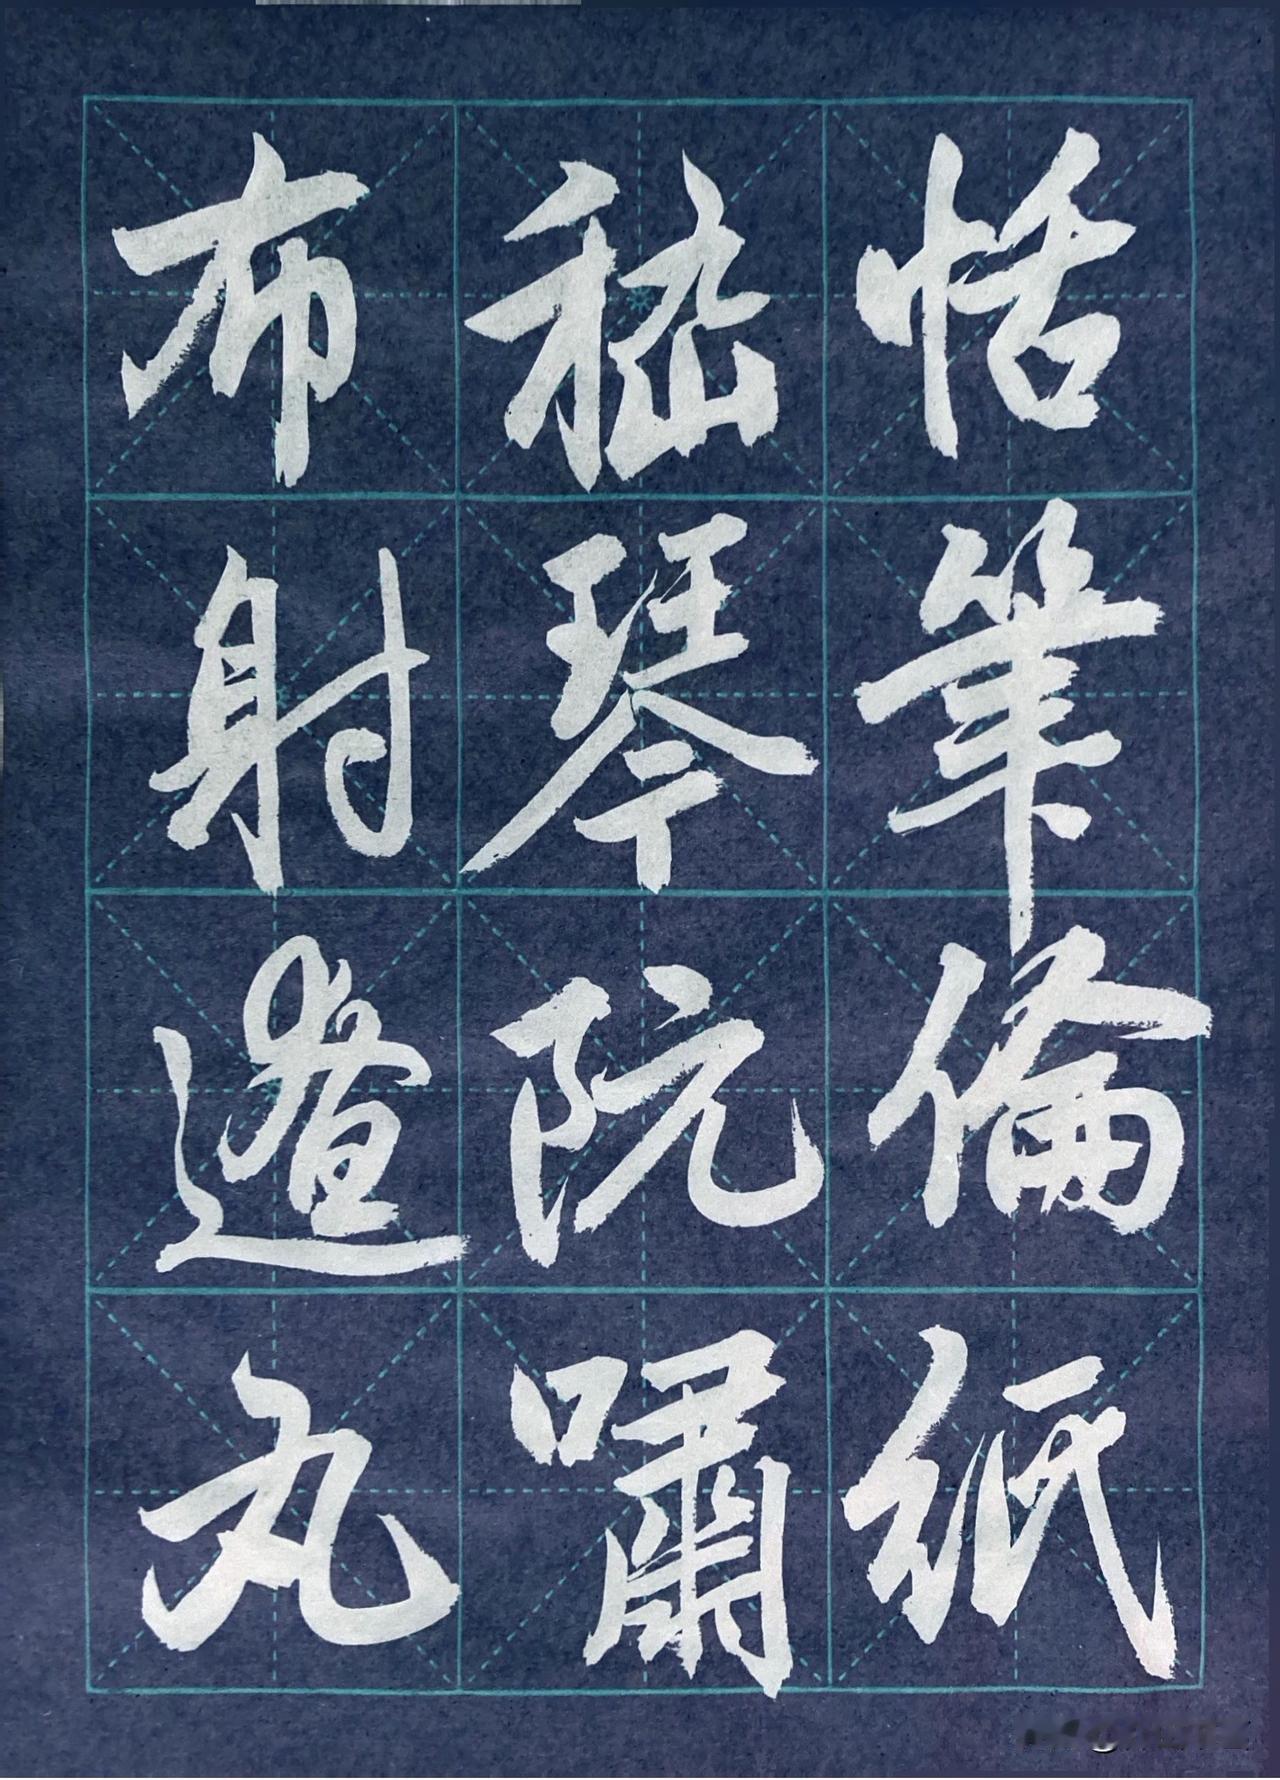 恬筆倫紙
嵇琴阮嘯
布射遼丸